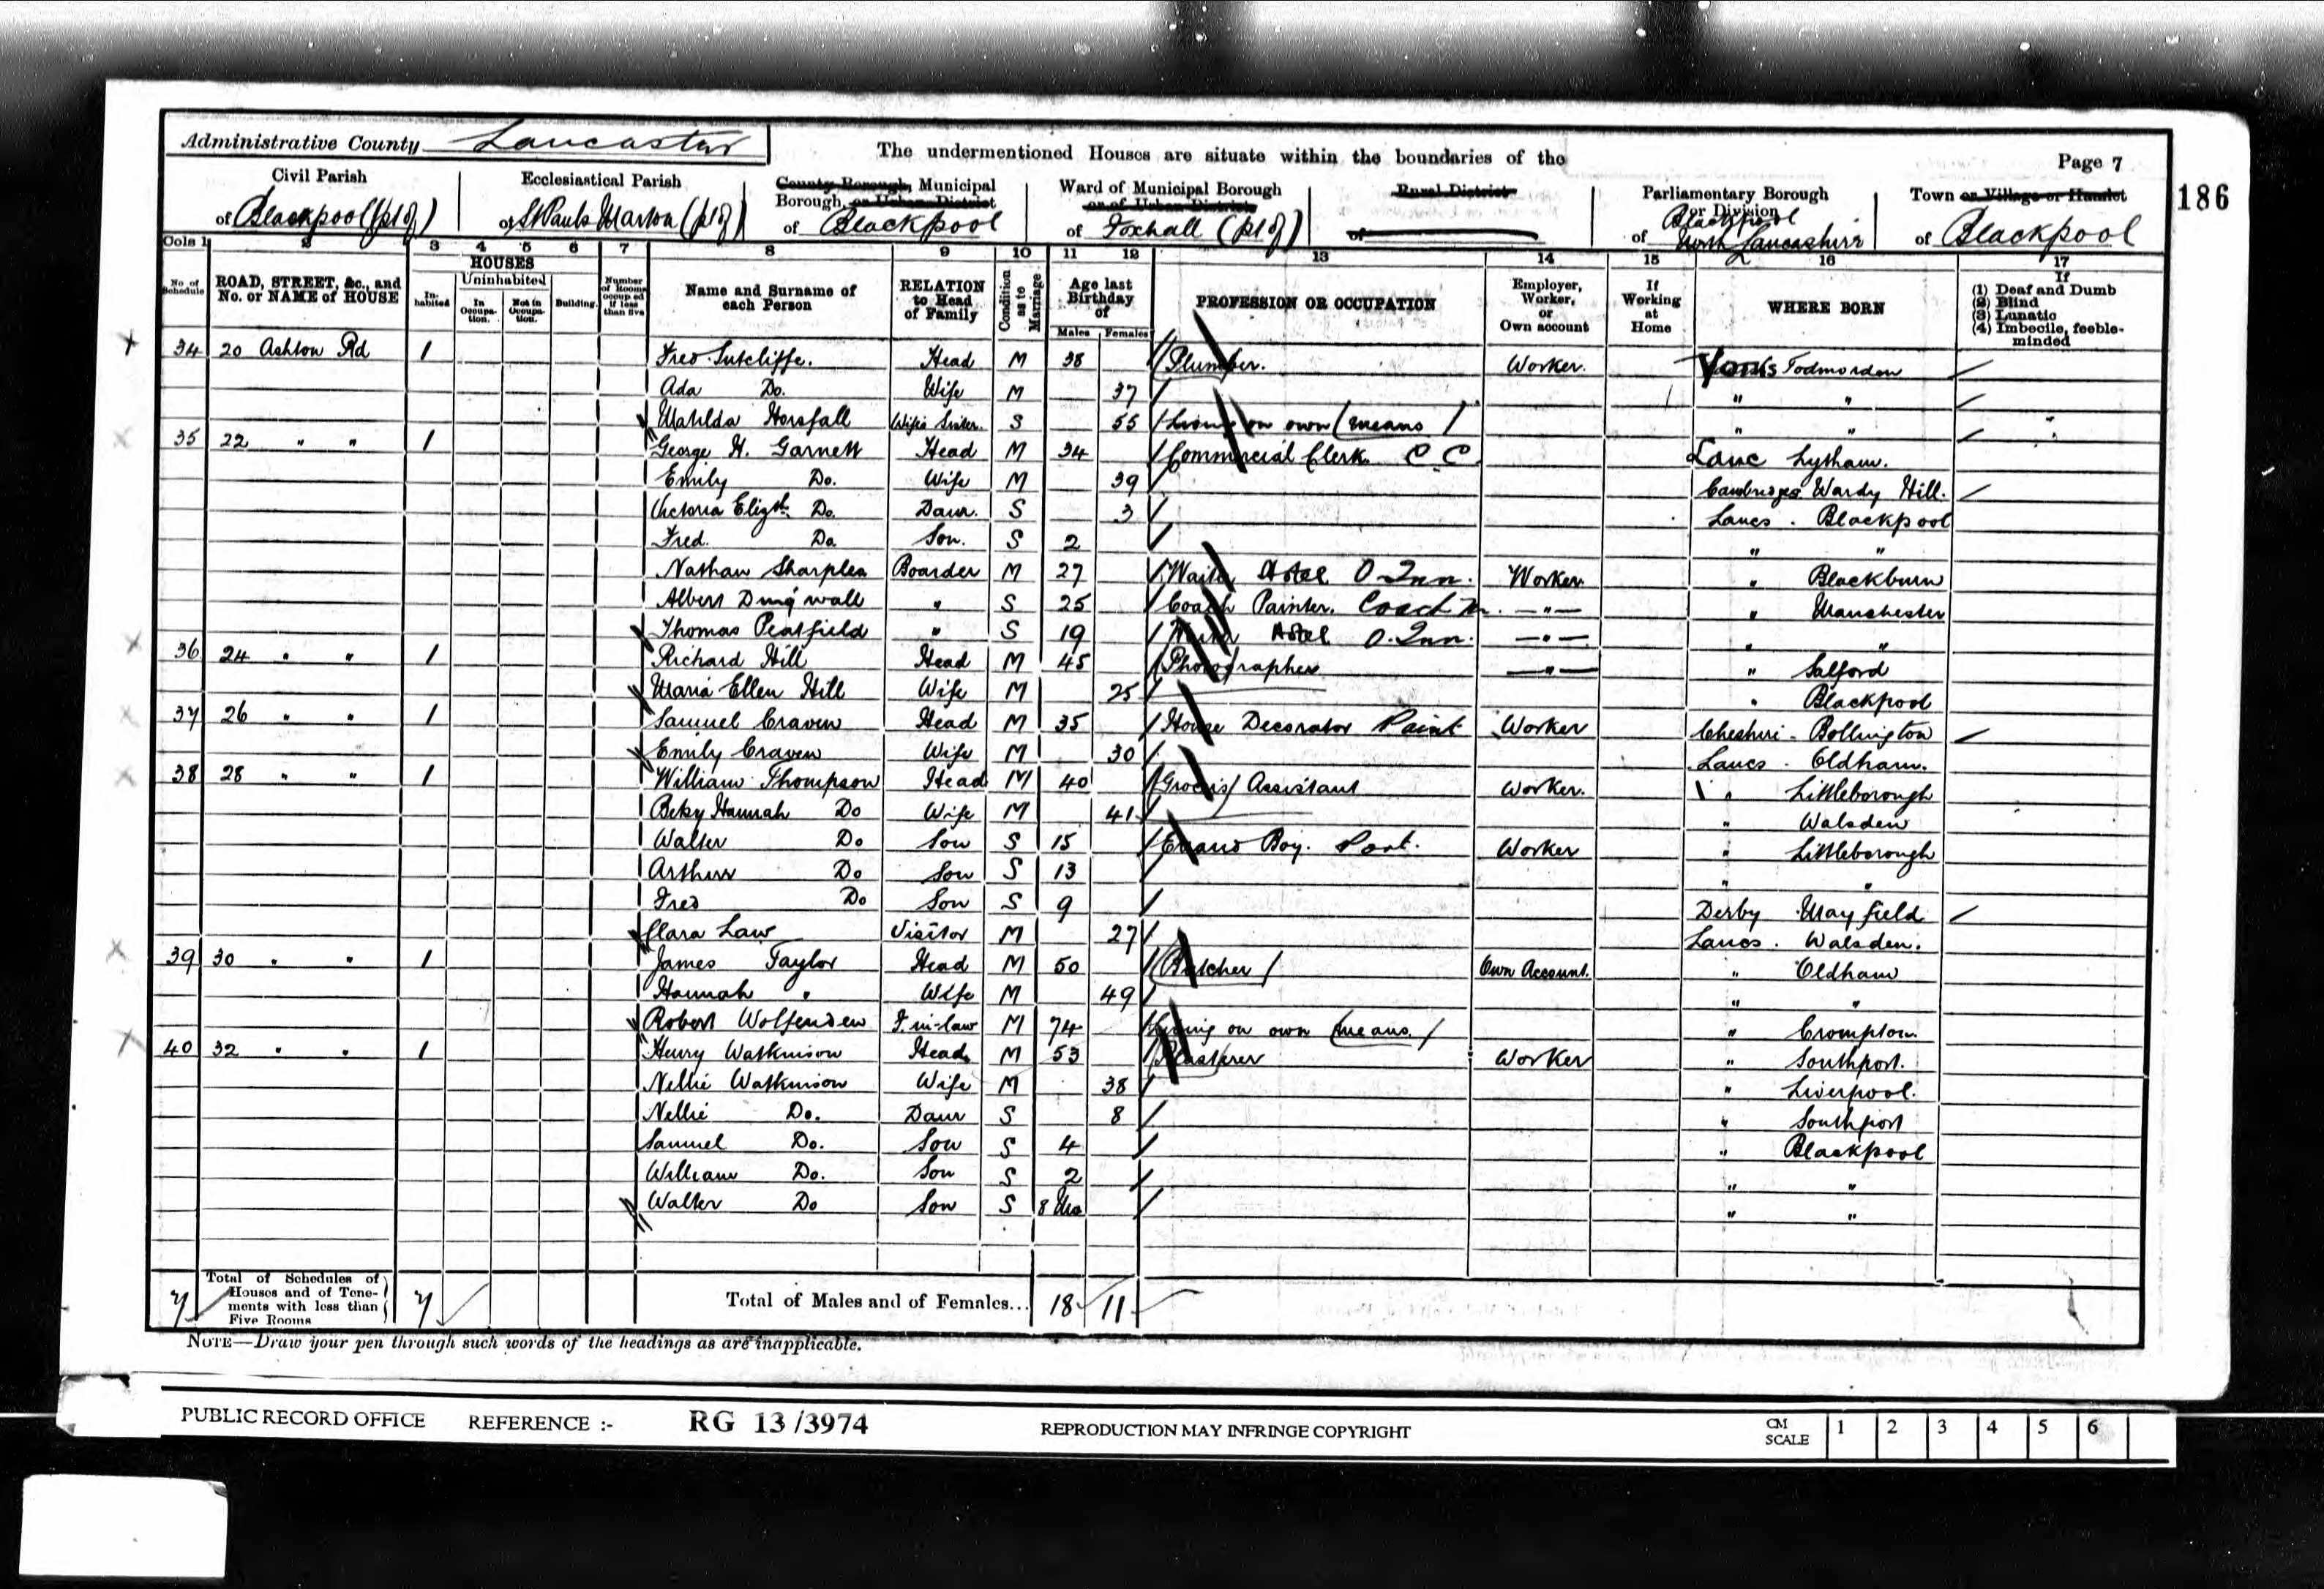 Administrative County Lancaster
The undermentioned Houses are situate within the boundaries of the
Page 7
186
Civil Parish
of Blackpool (pt of)
Ecclesiastical Parish
of St Pauls Marton (pt of)
County Borough, Municipal
Borough, or Urban District
of Blackpool
Ward of Municipal Borough
or of Urban District
of Foxhall (pt of)
Rural District
of
Parliamentary Borough
or Division
of Blackpool
North Lancashire
Town or Village or Hamlet
of Blackpool
Cols 1 2 3 4 5 6 7 8 9 10 11 12 13 14 15 16 17
No. of Schedule
ROAD, STREET, &c., and No. or NAME of HOUSE
HOUSES
Inhabited
Uninhabited
In Occupation.
Not in Occupation.
Building.
Number of Rooms occupied if less than five
Name and Surname of each Person
RELATION to Head of Family
Condition as to Marriage
Age last Birthday of
Males Females
PROFESSION OR OCCUPATION
Employer, Worker, or Own account
If Working at Home
WHERE BORN
If
(1) Deaf and Dumb
(2) Blind
(3) Lunatic
(4) Imbecile, feeble-minded
34 20 Ashton Rd 1 Fred Sutcliffe. Head M 38 Plumber. Worker. Yorks Todmorden
Ada Do. Wife M 37 " "
Matilda Horsfall Wife's Sister. S 55 Living on own means " "
35 22 " " 1 George H. Garnett Head M 34 Commercial Clerk C.C. Lanc Lytham.
Emily Do. Wife M 39 Cambridges Wardy Hill.
Victoria Elizth. Do. Daur. S 3 Lancs. Blackpool
Fred. Do Son. S 2 " "
Nathan Sharples Boarder M 27 Waiter Hotel O. Inn. Worker. " Blackburn
Albert Dingwall " S 25 Coach Painter. Coach M. —"— " Manchester
Thomas Peatfield " S 19 Waiter Hotel O. Inn. —"— " "
36 24 " " 1 Richard Hill Head M 45 Photographer —"— " Salford
Maria Ellen Hill Wife M 25 " Blackpool
37 26 " " 1 Samuel Craven Head M 35 House Decorator Paint Worker Cheshire - Bollington
Emily Craven Wife M 30 Lancs. Oldham.
38 28 " " 1 William Thompson Head M 40 Grocers Assistant Worker. " Littleborough
Beky Hannah Do Wife M 41 " Walsden
Walter Do Son S 15 Errand Boy. Port. Worker " Littleborough
Arthur Do Son S 13 " "
Fred Do Son S 9 Derby Mayfield
Clara Law Visitor M 27 Lancs. Walsden.
39 30 " " 1 James Taylor Head M 50 Butcher Own Account. " Oldham
Hannah " Wife M 49 " "
Robert Wolfenden F. in-law M 74 Living on own means. " Crompton
40 32 " " 1 Henry Watkinson Head M 53 Plasterer Worker " Southport.
Nellie Watkinson Wife M 38 " Liverpool.
Nellie Do. Daur S 8 " Southport
Samuel Do. Son S 4 " Blackpool
William Do. Son S 2 " "
Walter Do Son S 8 Mo " "
7 Total of Schedules of Houses and of Tenements with less than Five Rooms 7 Total of Males and of Females... 18 11
NOTE—Draw your pen through such words of the headings as are inapplicable.
PUBLIC RECORD OFFICE REFERENCE :- RG 13/3974 REPRODUCTION MAY INFRINGE COPYRIGHT CM SCALE 1 2 3 4 5 6